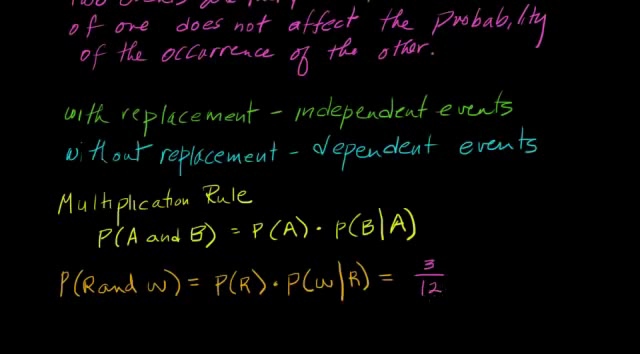 of one does not affect the probability
of the occurrence of the other.
with replacement - independent events
without replacement - dependent events
Multiplication Rule
P(A and B) = P(A) · P(B|A)
P(R and W) = P(R) · P(W|R) = 3/12